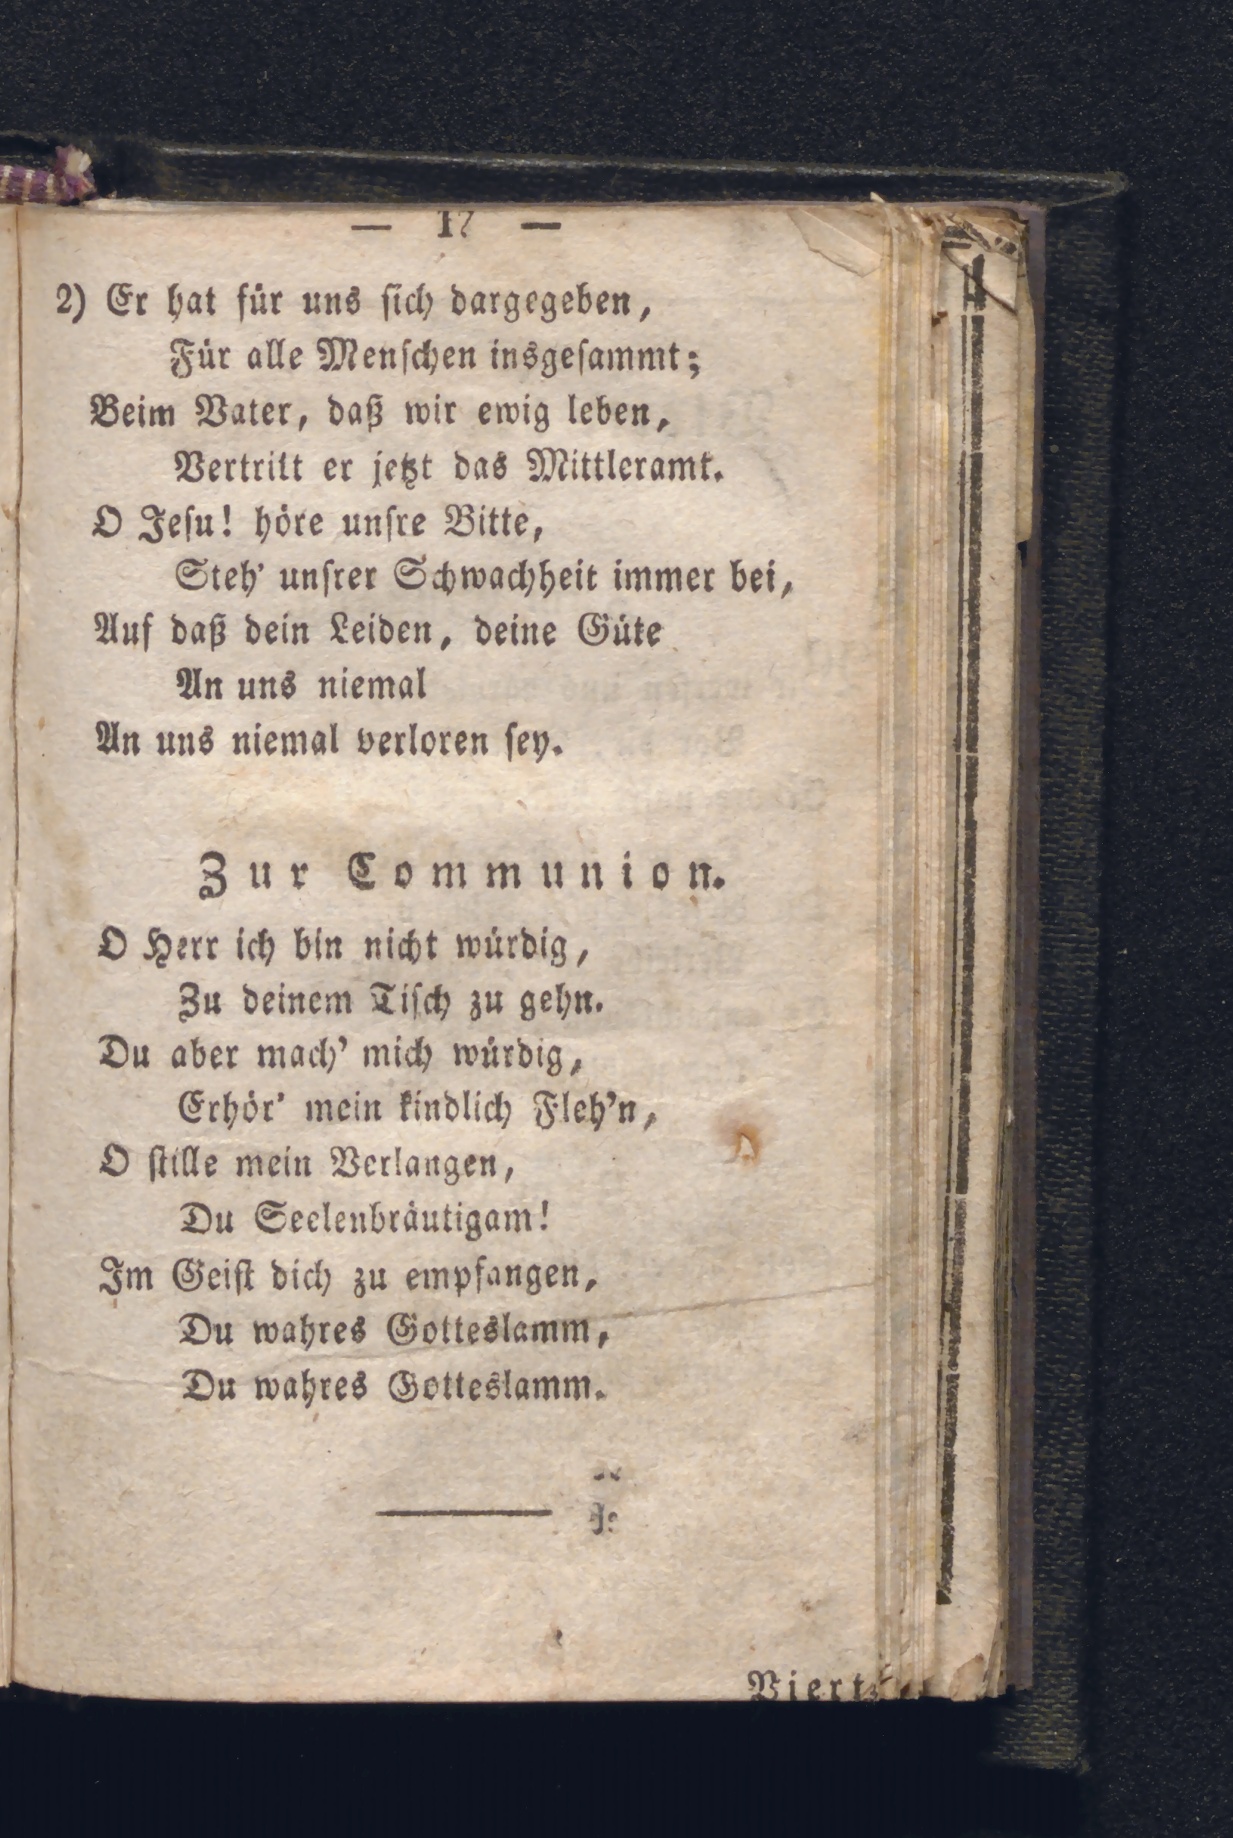 — 17 —
2) Er hat für uns ſich dargegeben,
Für alle Menſchen insgeſammt;
Beim Vater, daß wir ewig leben,
Vertritt er jetzt das Mittleramt.
O Jeſu! höre unſre Bitte,
Steh' unſrer Schwachheit immer bei,
Auf daß dein Leiden, deine Güte
An uns niemal
An uns niemal verloren ſey.
Zur Communion.
O Herr ich bin nicht würdig,
Zu deinem Tiſch zu gehn.
Du aber mach' mich würdig,
Erhör' mein kindlich Fleh'n,
O ſtille mein Verlangen,
Du Seelenbräutigam!
Im Geiſt dich zu empfangen,
Du wahres Gotteslamm,
Du wahres Gotteslamm.